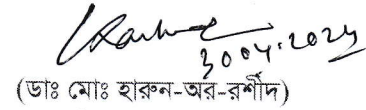 30.04.2024
(ডাঃ মোঃ হারুন-অর-রশীদ)